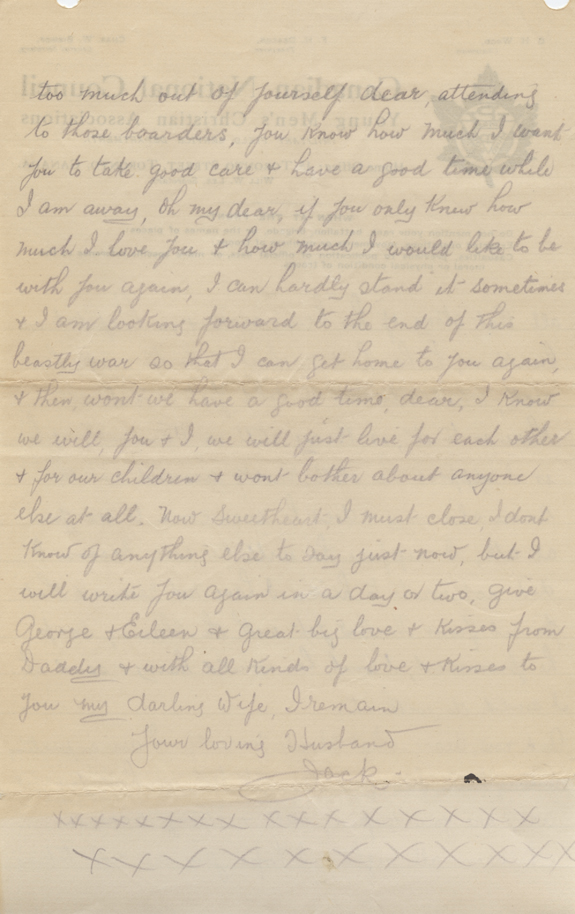 too much out of yourself dear, attending
to those boarders, you know how much I want
you to take good care & have a good time while
I am away, Oh my dear, if you only knew how
much I love you & how much I would like to be
with you again, I can hardly stand it sometimes
& I am looking forward to the end of this
beastly war so that I can get home to you again,
& then, wont we have a good time, dear, I know
we will, you & I, we will just live for each other
& for our children & wont bother about anyone
else at all. Now Sweetheart, I must close, I dont
know of anything else to say just now, but I
will write you again in a day or two, give
George & Eileen & great big love & kisses from
Daddy & with all kinds of love & kisses to
you my darling Wife, I remain
Your loving Husband
Jack.
x x x x x x x x x x x x x x x x
x x x x x x x x x x x x x